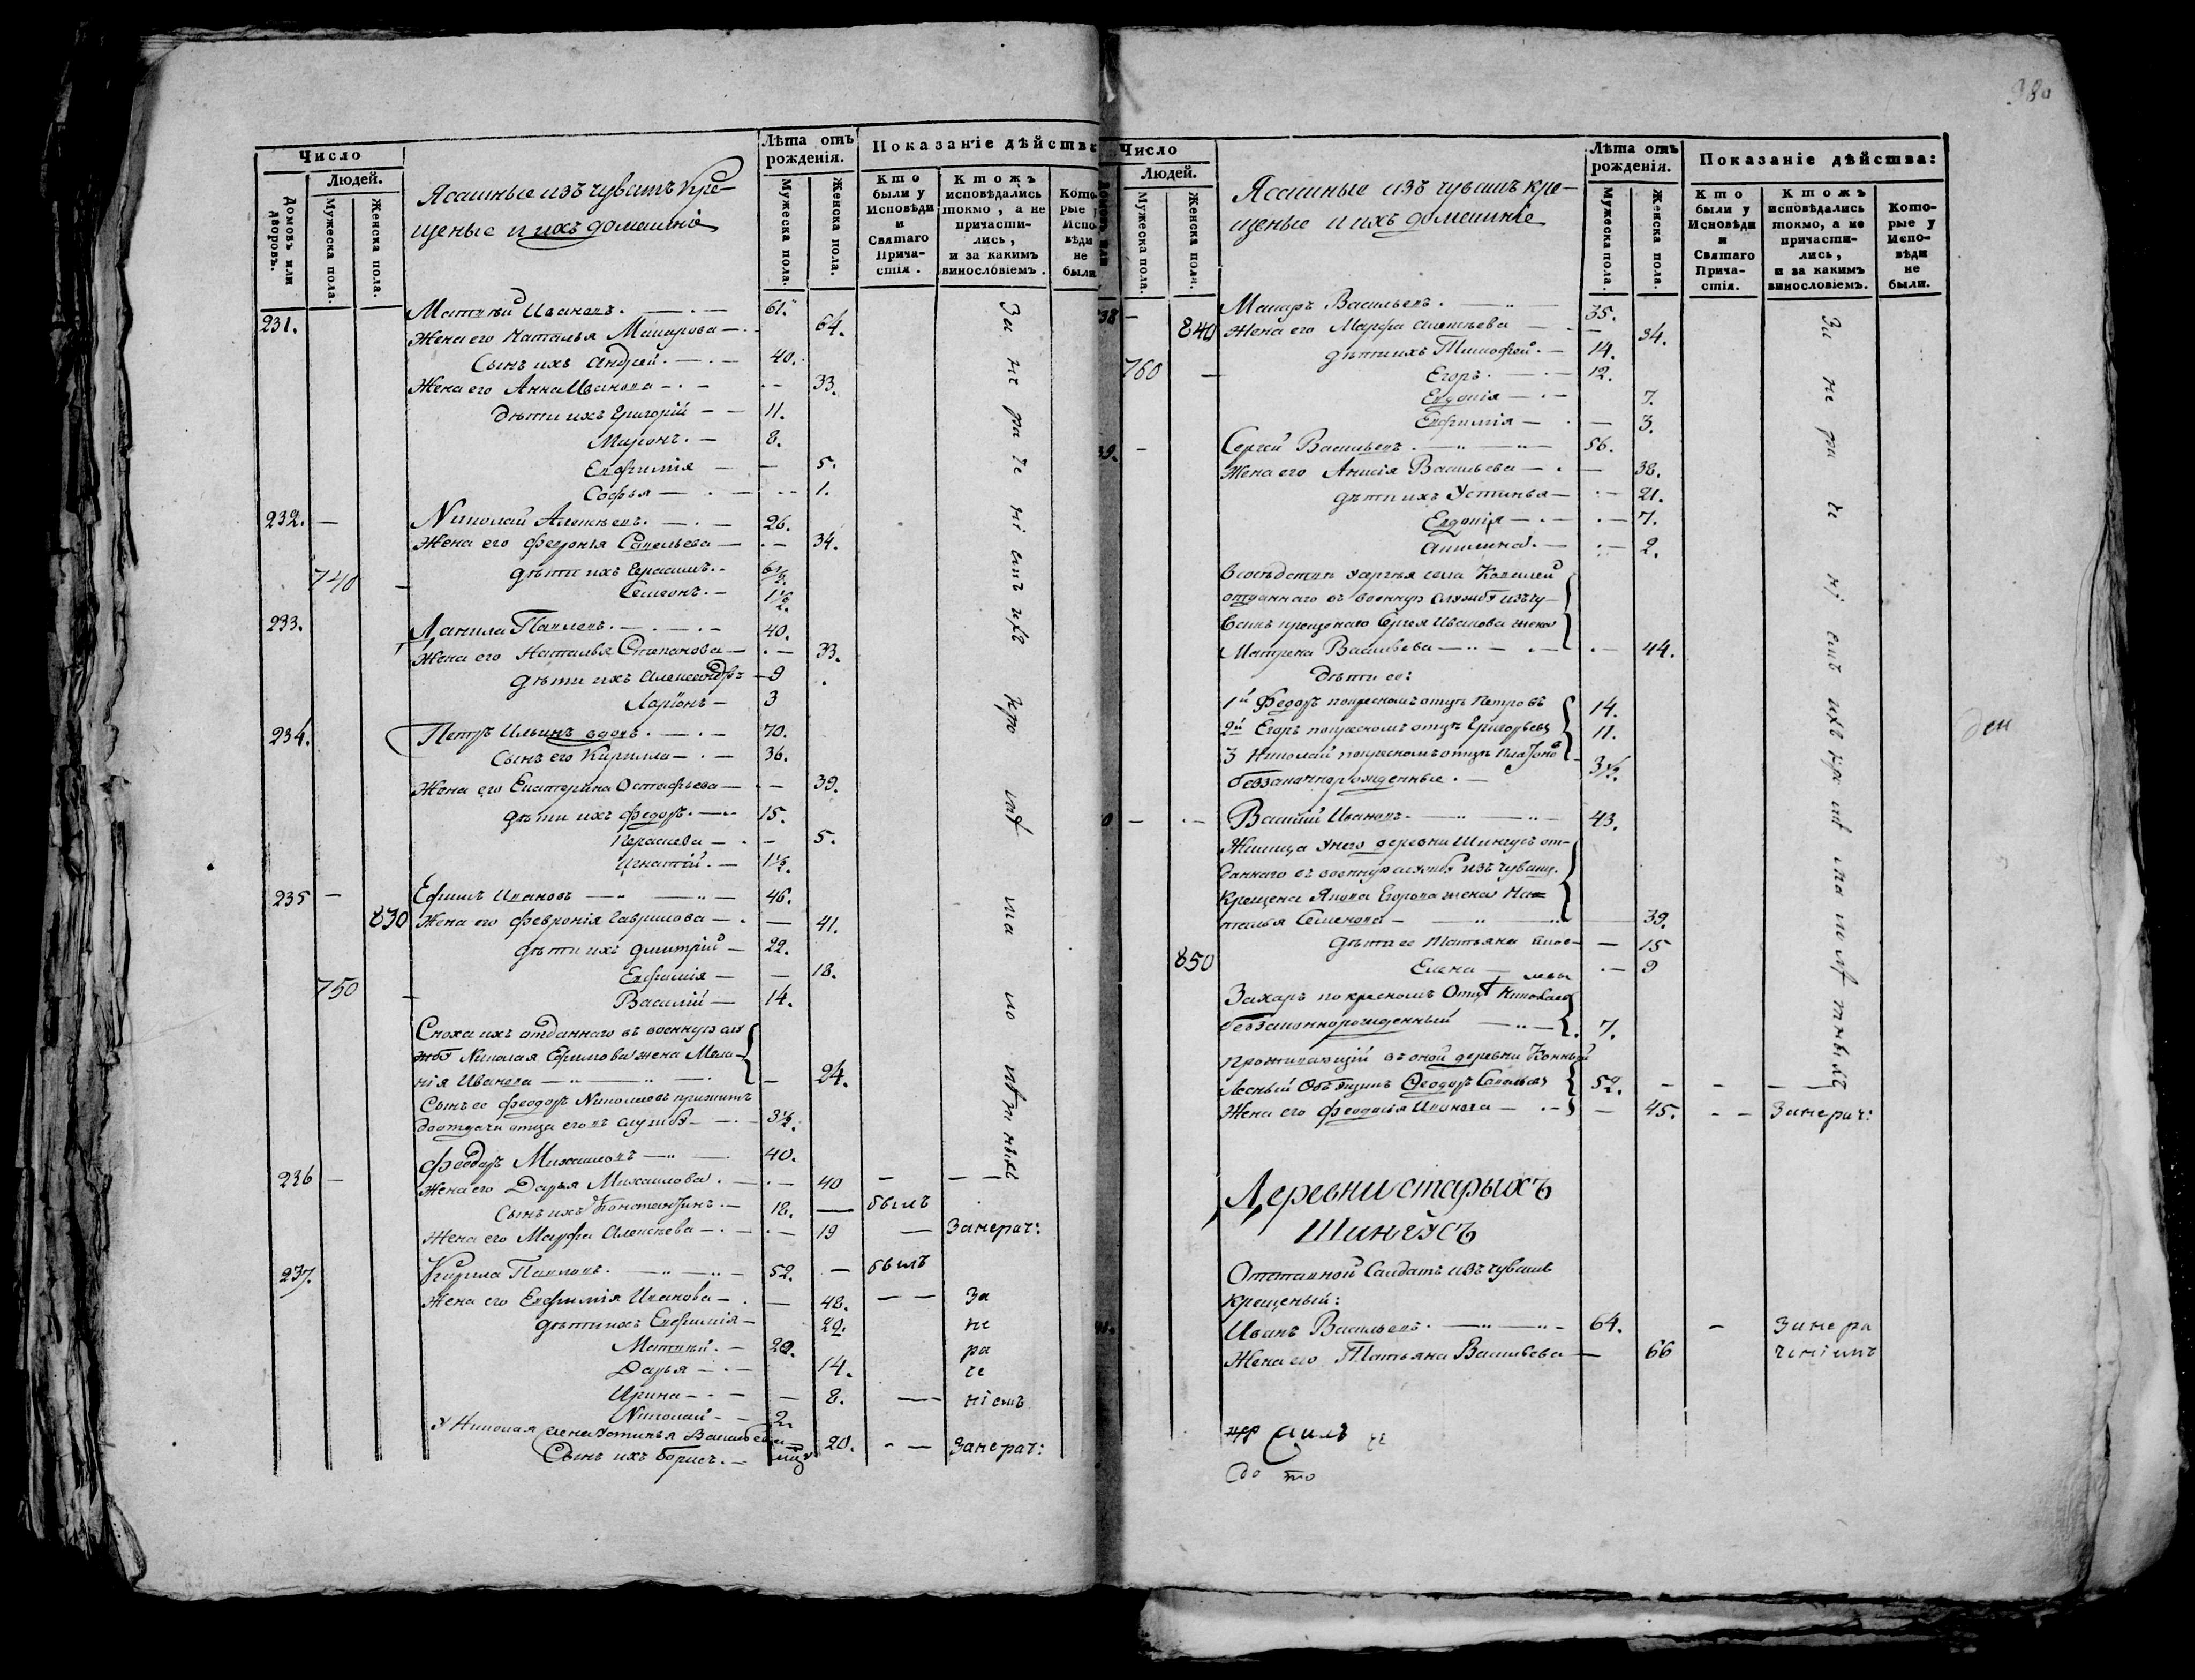 Число
Людей.
Домовъ или дворовъ.
Мужеска пола.
Женска пола.
Ясашные изъ чувашъ кре-
щеные и ихъ домашніе
Лѣта отъ рожденія.
Мужеска пола.
Женска пола.
Показаніе дѣйства
Кто были у Исповѣди и Святаго Прича-стія.
Ктожъ исповѣдались токмо, а не причасти-лись, и за какимъ винословіемъ.
Кото-рые Испо-вѣди не были
231. Матвей Ивановъ. 61.
Жена его Наталья Макарова 64.
Сынъ ихъ Андрей. 40.
Жена его Анна Иванова 33.
Дѣти ихъ Григорій 11.
Миронъ. 8.
Евфимія 5.
Софья 1.
232. Николай Алексѣевъ. 26.
Жена его Феѵронія Савельева 34.
740 дѣти ихъ Герасимъ.
Семеонъ. 1 1/2.
233. Данила Павловъ. 40.
Жена его Наталья Степанова 33.
дѣти ихъ Александръ 9
Ларіонъ 3
234. Петръ Ильинъ вдовъ. 70.
Сынъ его Кирилла 36.
Жена его Екатерина Остафьева 39.
дѣти ихъ Федоръ. 15.
5.
Игнатій. 1 1/2.
235 Ефимъ Ивановъ 46.
830 Жена его Февронія Гаврилова 41.
дѣти ихъ Димитрій 22.
Евфимія 18.
750 Василій 14.
Сноха ихъ отданнаго въ военную слу
жбу Николая Ефимова жена Мела-
нія Иванова 24.
Сынъ ее Феодоръ Николаевъ прижитъ
до отдачи отца его въ службу 3 1/2.
Феодоръ Михайловъ 40.
236 Жена его Дарья Михайлова. 40
Сынъ ихъ Константинъ. 18. былъ
Жена его Марфа Алексѣева 19 Занерач:
237. Кирила Павловъ. 52. былъ
Жена его Евфимія Иванова 48. За
дѣти ихъ Евфимія 22. не
Матвей. 20. ра
Дарья 14. че
Ирина 8. ніемъ
Николай 2.
У Николая жена Устинья Василь 20. Занерач:
Сынъ ихъ Борисъ.
За не ра че ні емъ ихъ
Число
Людей.
Мужеска пола.
Женска пола.
Ясашные изъ чувашъ кре-
щеные и ихъ домашніе
Лѣта отъ рожденія.
Мужеска пола.
Женска пола.
Показаніе дѣйства:
Кто были у Исповѣди и Святаго Прича-стія.
Ктожъ исповѣдались токмо, а не причасти-лись, и за какимъ винословіемъ.
Кото-рые у Испо-вѣди не были.
38 Макаръ Васильевъ. 35.
840 Жена его Марфа Алексѣева 34.
дѣти ихъ Тимофей. 14.
760 Егоръ. 12.
Евдокія 7.
Евфимія 3.
39. Сергей Васильевъ. 56.
Жена его Анисія Васильева 38.
дѣти ихъ Устинья 21.
Евдокія 7.
Акилина. 2.
отданнаго въ военную службу изъ чу-
вашъ крещенаго Сергея Иванова жена
Матрена Васильева 44.
Дѣти ее:
1й Федоръ по кресномъ отцѣ Петровъ 14.
2й Егоръ по кресномъ отцѣ Григорьевъ 11.
3 Николай по кресномъ отцѣ 3 1/2.
беззаконнорожденные.
0 Василій Ивановъ. 43.
Жилица у него деревни Шингусъ от-
даннаго въ военную службу изъ чувашъ
крещена Якова Егорова жена На=
талья Семенова 39.
дѣти ее Татьяна 15
850 Елена 9
Захаръ по кресномъ Отцѣ Николаевъ
беззаконнорожденный 7.
Проживающій въ оной деревни Конный
Лесный Объѣщикъ Феодоръ Савельевъ 52.
Жена его Феодосія Иванова 45. Занерач:
За не ра че ні емъ ихъ
Деревни старыхъ
Шингусъ
Отставной Салдатъ изъ чувашъ
крещеный:
Иванъ Васильевъ. 64. Занера
Жена его Татьяна Васильева 66 ченіемъ